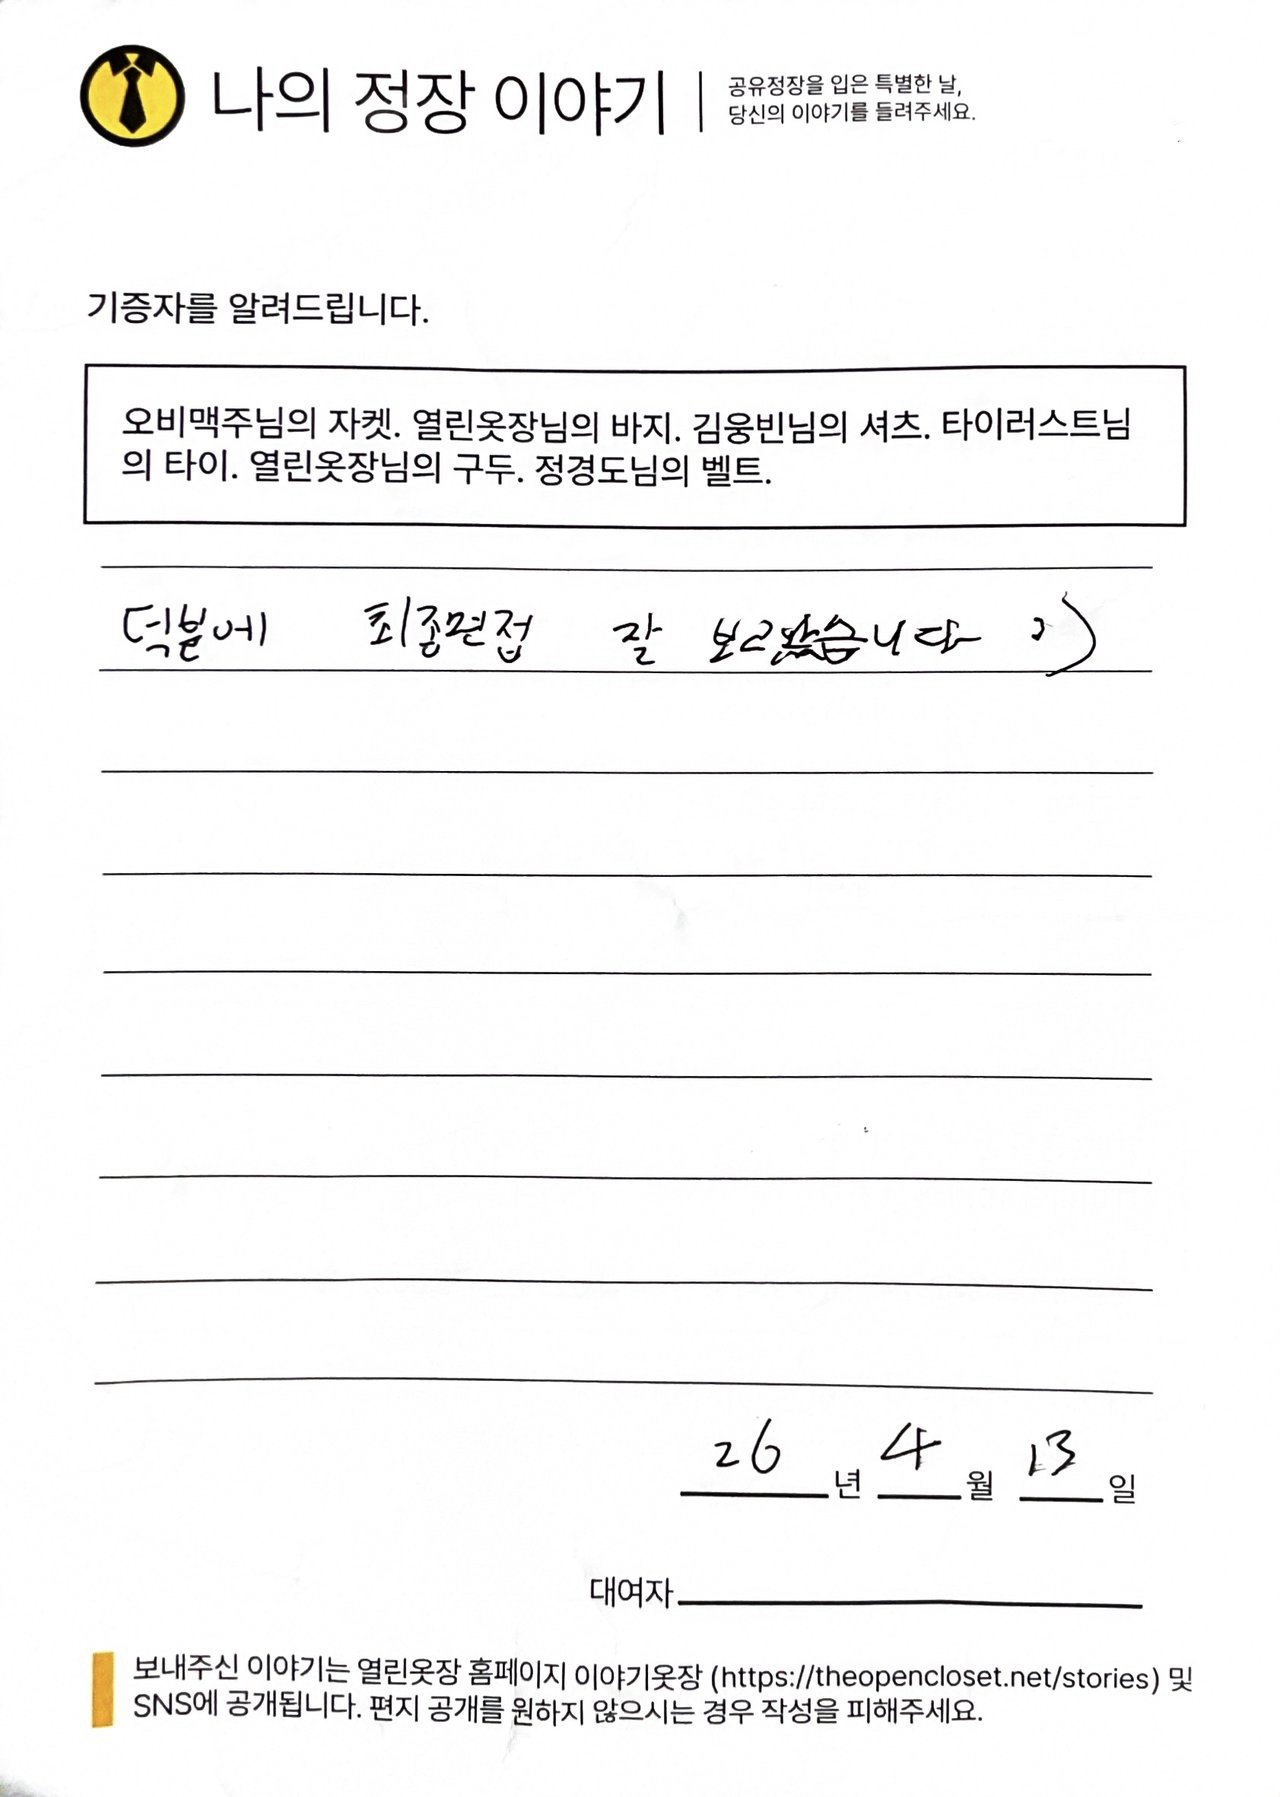 나의 정장 이야기
공유정장을 입은 특별한 날,
당신의 이야기를 들려주세요.
기증자를 알려드립니다.
오비맥주님의 자켓. 열린옷장님의 바지. 김웅빈님의 셔츠. 타이러스트님
의 타이. 열린옷장님의 구두. 정경도님의 벨트.
덕분에 최종면접 잘 :)
26년 4월 13일
대여자
보내주신 이야기는 열린옷장 홈페이지 이야기옷장 (https://theopencloset.net/stories) 및
SNS에 공개됩니다. 편지 공개를 원하지 않으시는 경우 작성을 피해주세요.